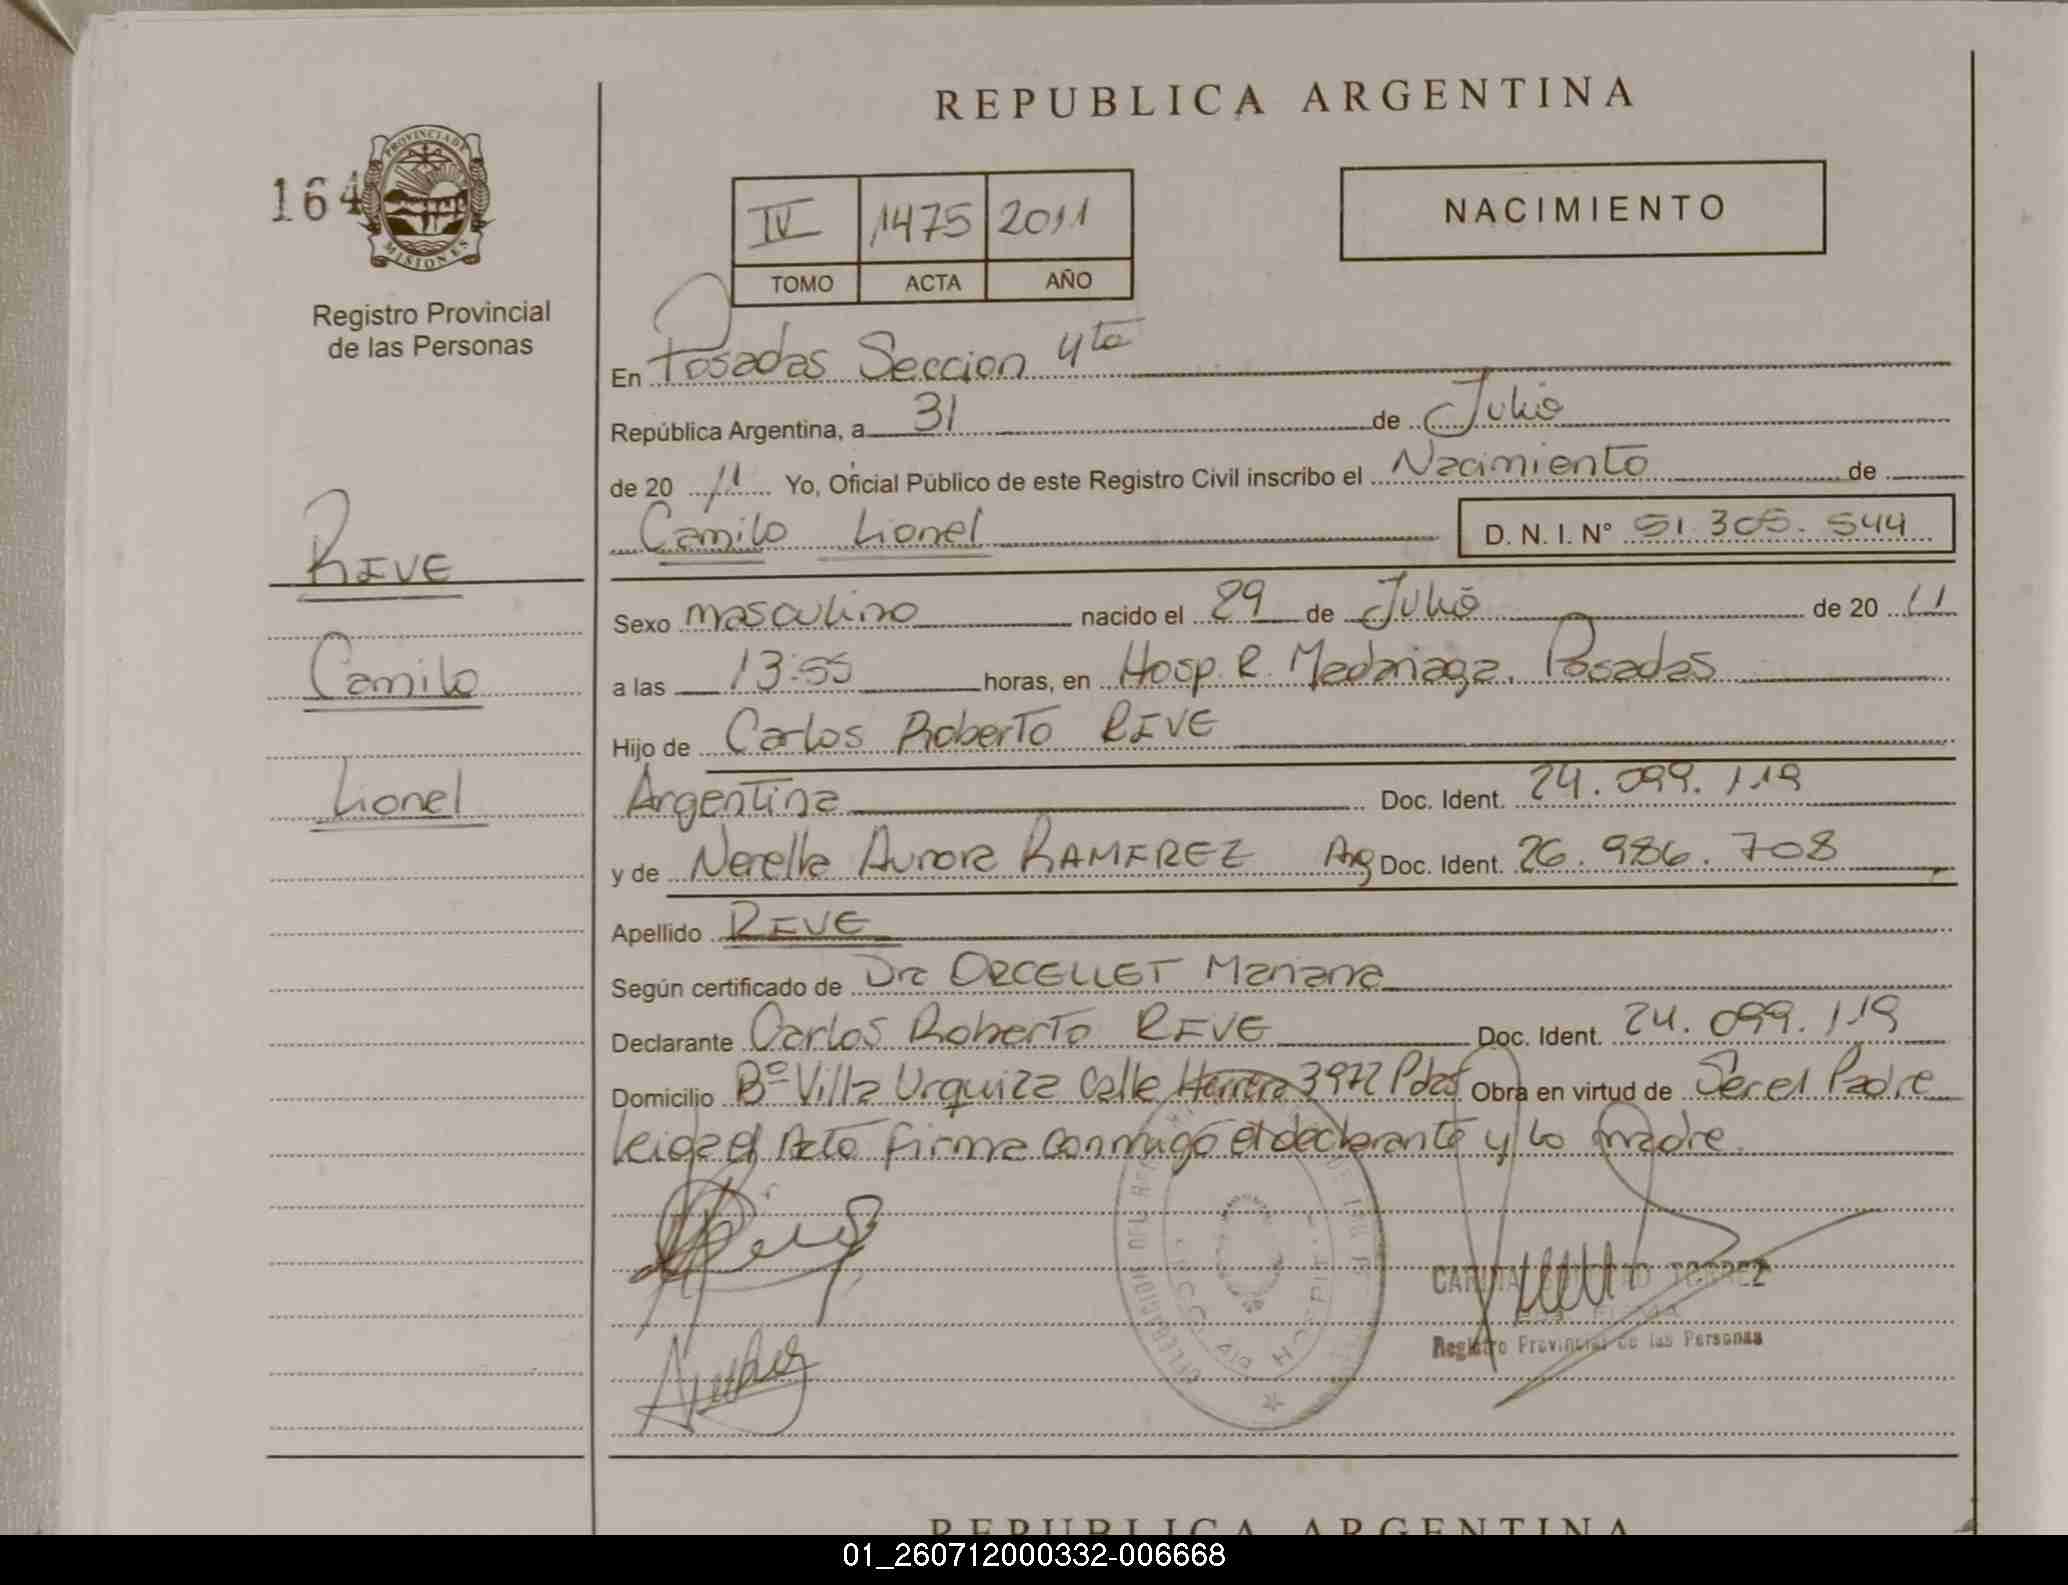 REPUBLICA ARGENTINA
164
PROVINCIA DE
MISIONES
Registro Provincial
de las Personas
IV 1475 2011
TOMO ACTA AÑO
NACIMIENTO
En Posadas Seccion 4ta
República Argentina, a 31 de Julio
de 20 11 Yo, Oficial Público de este Registro Civil inscribo el Nacimiento de
Camilo Lionel D. N. I. Nº 51.305.544
RIVE
Camilo
Lionel
Sexo masculino nacido el 29 de Julio de 20 11
a las 13:55 horas, en Hosp. R. Madariaga. Posadas
Hijo de Carlos Roberto RIVE
Argentina Doc. Ident. 24.099.119
y de Nerella Aurora RAMIREZ Arg Doc. Ident. 26.986.708
Apellido RIVE
Según certificado de Dra ORCELLET Mariana
Declarante Carlos Roberto RIVE Doc. Ident. 24.099.119
Domicilio Bº Villa Urquiza Calle Herrera 3972 Pdas Obra en virtud de Ser el Padre
leida el Acto firma conmigo el declarante y la madre.
TORREZ
Registro Provincial de las Personas
REPUBLICA ARGENTINA
01_260712000332-006668